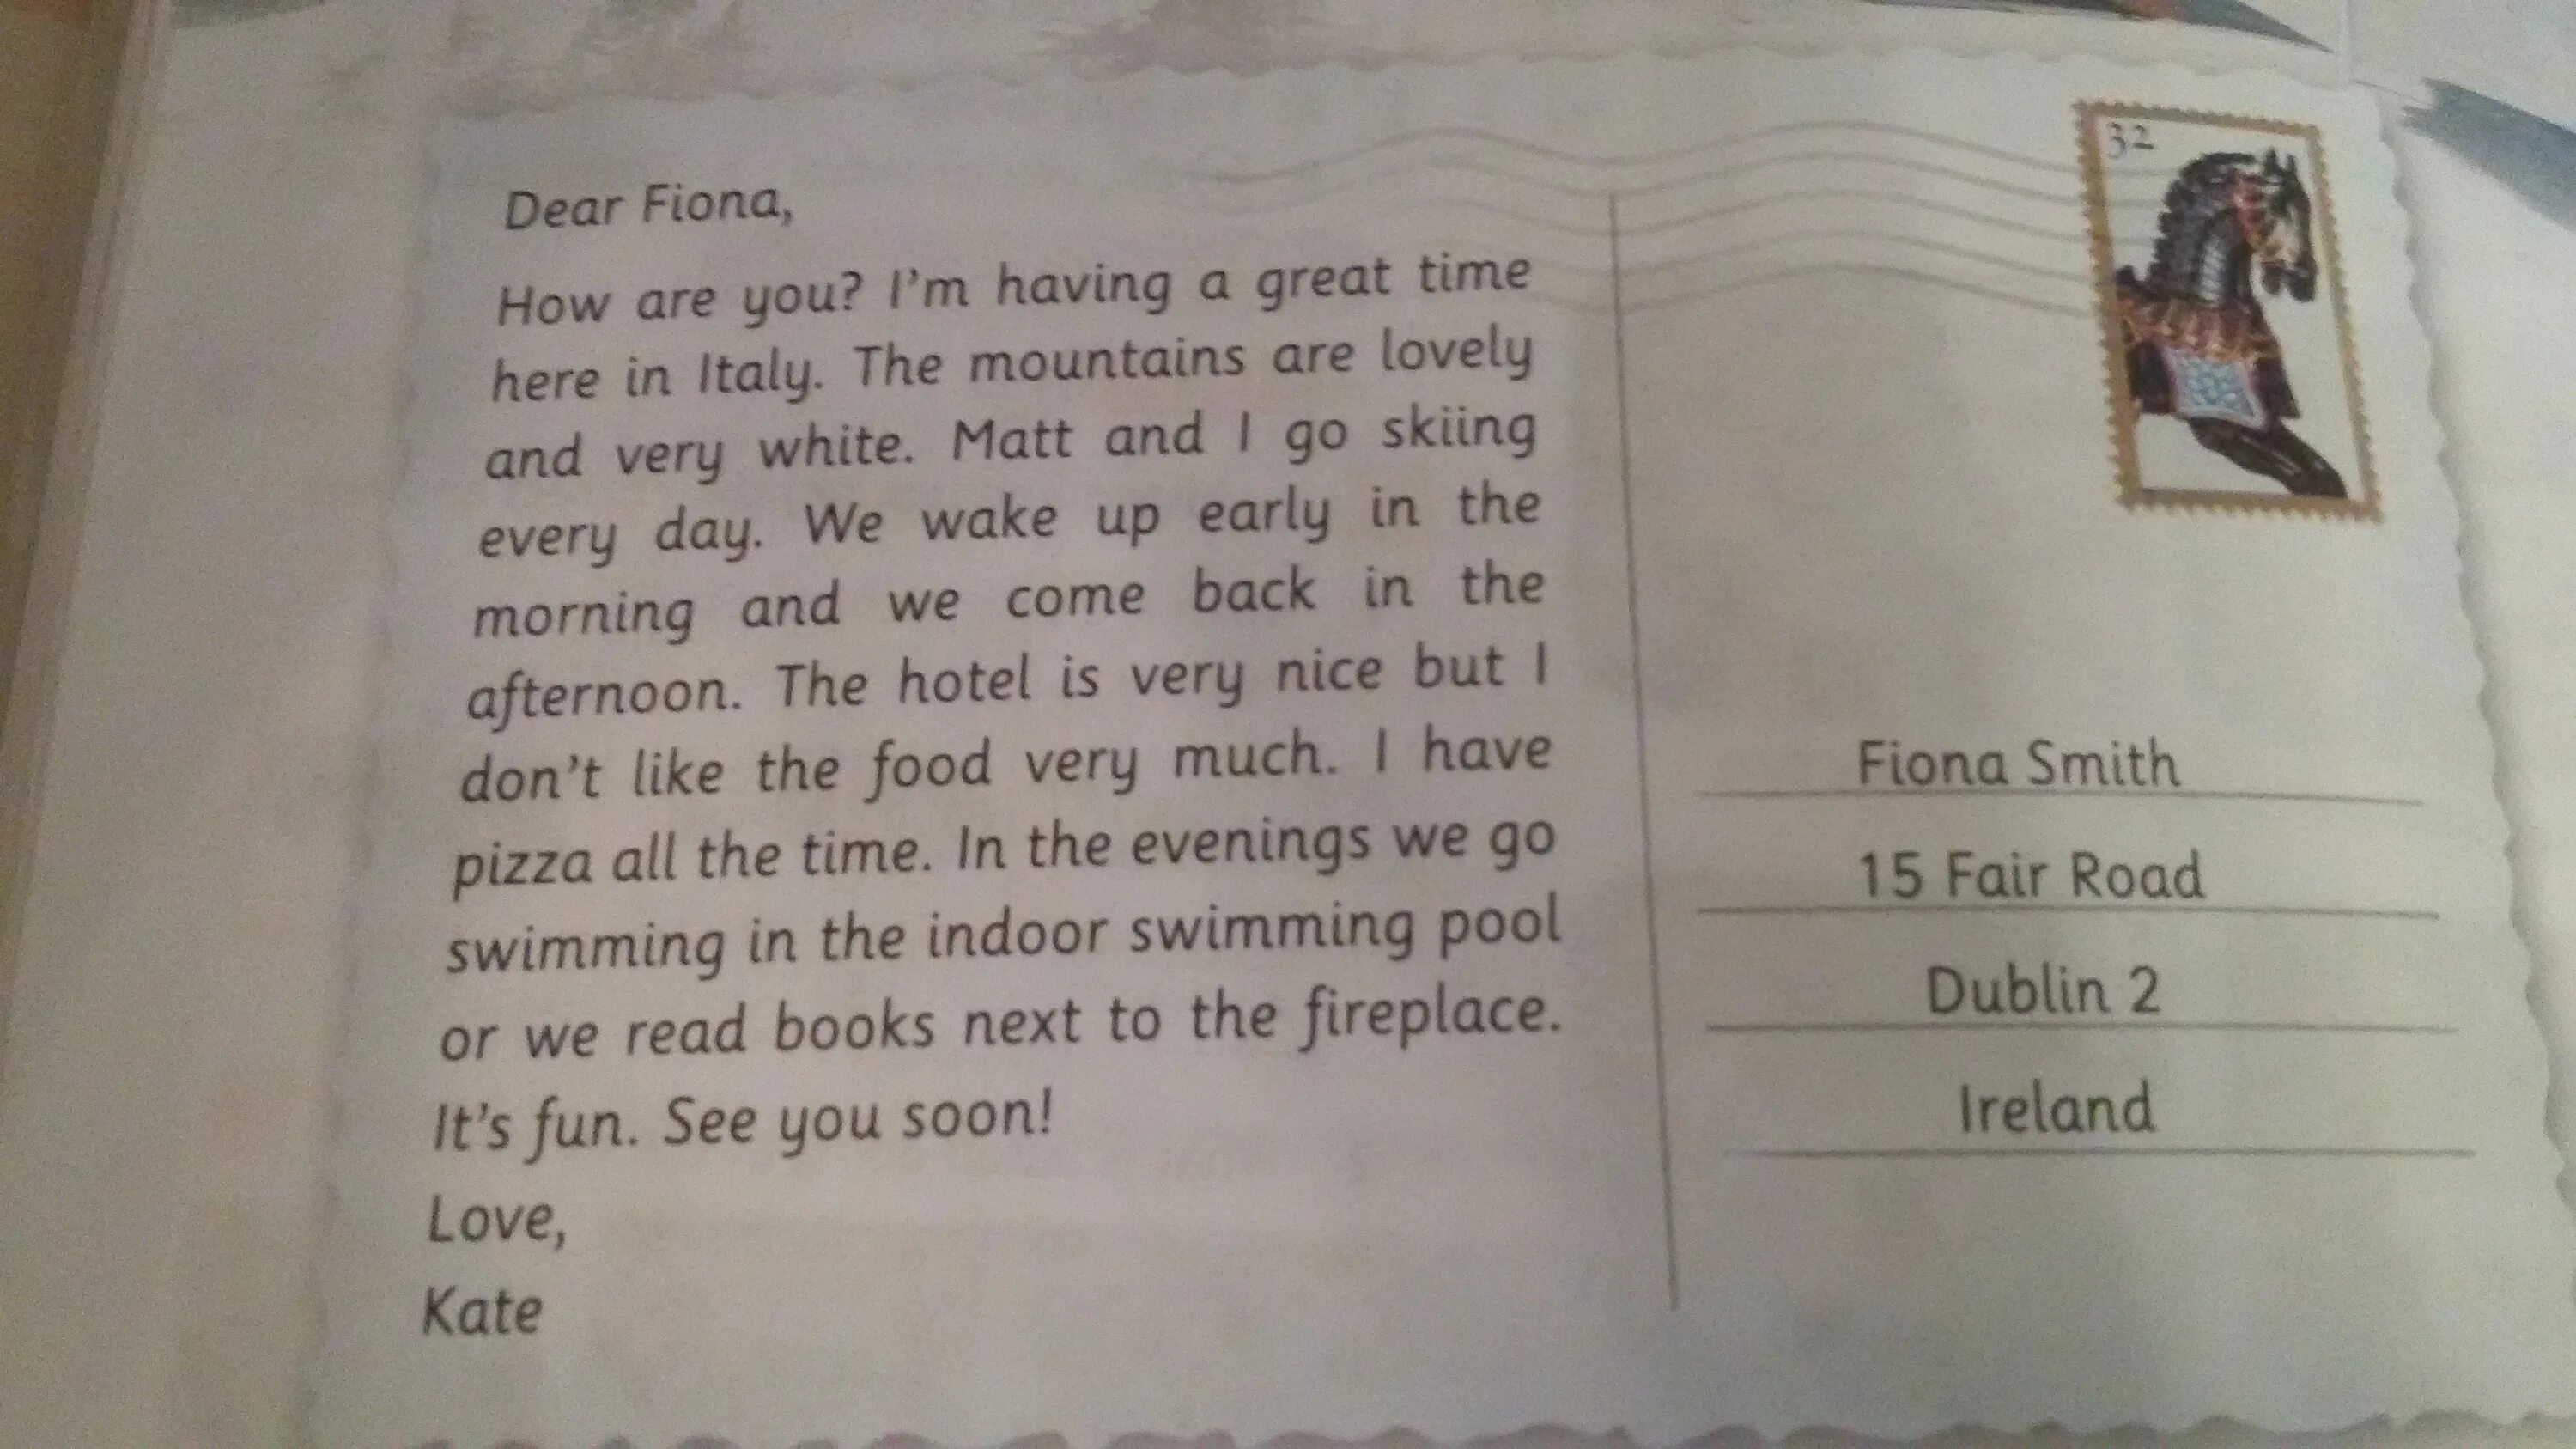 Dear Fiona,
How are you? I'm having a great time
here in Italy. The mountains are lovely
and very white. Matt and I go skiing
every day. We wake up early in the
morning and we come back in the
afternoon. The hotel is very nice but I
don't like the food very much. I have
pizza all the time. In the evenings we go
swimming in the indoor swimming pool
or we read books next to the fireplace.
It's fun. See you soon!
Love,
Kate
32
Fiona Smith
15 Fair Road
Dublin 2
Ireland